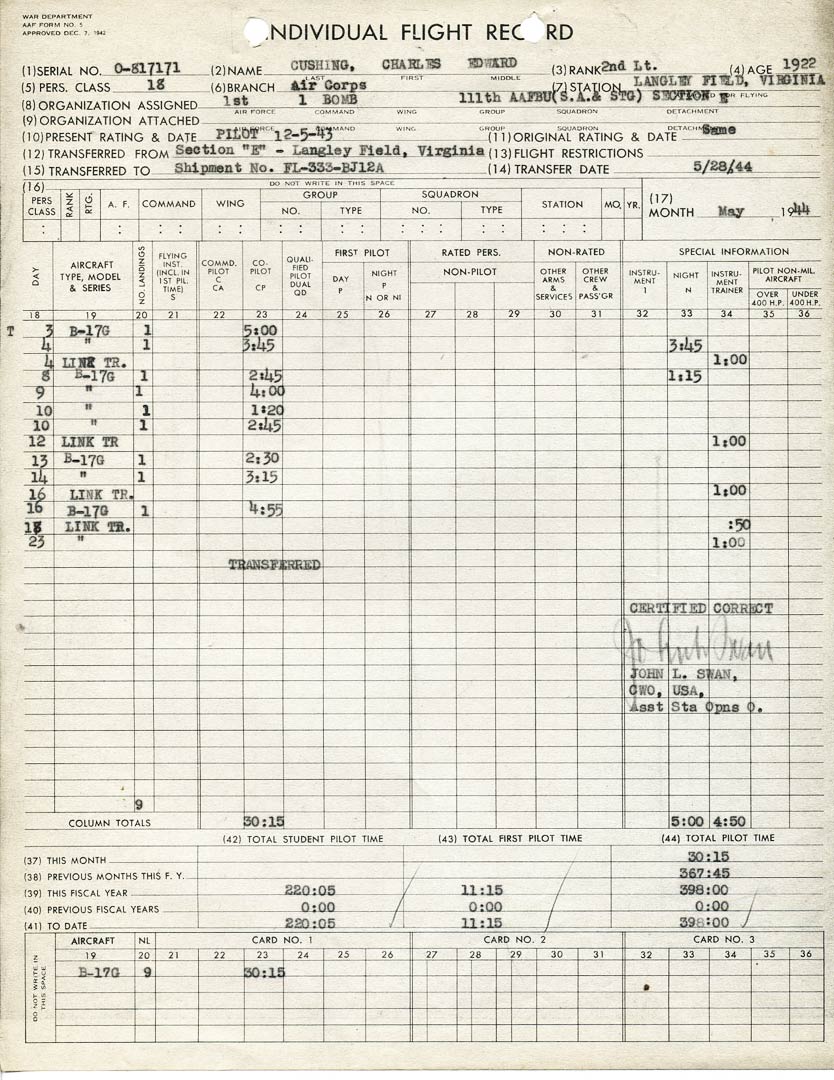 WAR DEPARTMENT
AAF FORM NO. 5
APPROVED DEC. 7, 1942
INDIVIDUAL FLIGHT RECORD
(1) SERIAL NO. O-817171 (2) NAME CUSHING, CHARLES EDWARD (3) RANK 2nd Lt. (4) AGE 1922
LAST FIRST MIDDLE
(5) PERS. CLASS 18 (6) BRANCH Air Corps (7) STATION LANGLEY FIELD, VIRGINIA
(8) ORGANIZATION ASSIGNED 1st 1 BOMB 111th AAFBU(S.A.& STG) SECTION E
AIR FORCE COMMAND WING GROUP SQUADRON DETACHMENT
(9) ORGANIZATION ATTACHED
AIR FORCE COMMAND WING GROUP SQUADRON DETACHMENT
(10) PRESENT RATING & DATE PILOT 12-5-43 (11) ORIGINAL RATING & DATE Same
(12) TRANSFERRED FROM Section "E" - Langley Field, Virginia (13) FLIGHT RESTRICTIONS
(15) TRANSFERRED TO Shipment No. FL-333-BJ12A (14) TRANSFER DATE 5/28/44
(16) DO NOT WRITE IN THIS SPACE
PERS CLASS RANK RTG. A. F. COMMAND WING GROUP NO. TYPE SQUADRON NO. TYPE STATION MO. YR.
(17) MONTH May 1944
DAY AIRCRAFT TYPE, MODEL & SERIES NO. LANDINGS FLYING INST. (INCL. IN 1ST PIL. TIME) S COMMD. PILOT C CA CO-PILOT CP QUALI-FIED PILOT DUAL QD FIRST PILOT DAY P NIGHT P N OR NI RATED PERS. NON-PILOT NON-RATED OTHER ARMS & SERVICES OTHER CREW & PASS'GR SPECIAL INFORMATION INSTRU-MENT I NIGHT N INSTRU-MENT TRAINER PILOT NON-MIL. AIRCRAFT OVER 400 H.P. UNDER 400 H.P.
18 19 20 21 22 23 24 25 26 27 28 29 30 31 32 33 34 35 36
T 3 B-17G 1 5:00
4 " 1 3:45 3:45
4 LINK TR. 1:00
8 B-17G 1 2:45 1:15
9 " 1 4:00
10 " 1 1:20
10 " 1 2:45
12 LINK TR 1:00
13 B-17G 1 2:30
14 " 1 3:15
16 LINK TR. 1:00
16 B-17G 1 4:55
18 LINK TR. :50
23 " 1:00
TRANSFERRED
CERTIFIED CORRECT
JOHN L. SWAN,
CWO, USA,
Asst Sta Opns O.
9
COLUMN TOTALS 30:15 5:00 4:50
(42) TOTAL STUDENT PILOT TIME (43) TOTAL FIRST PILOT TIME (44) TOTAL PILOT TIME
(37) THIS MONTH 30:15
(38) PREVIOUS MONTHS THIS F. Y. 367:45
(39) THIS FISCAL YEAR 220:05 11:15 398:00
(40) PREVIOUS FISCAL YEARS 0:00 0:00 0:00
(41) TO DATE 220:05 11:15 398:00
DO NOT WRITE IN THIS SPACE
AIRCRAFT NL CARD NO. 1 CARD NO. 2 CARD NO. 3
19 20 21 22 23 24 25 26 27 28 29 30 31 32 33 34 35 36
B-17G 9 30:15